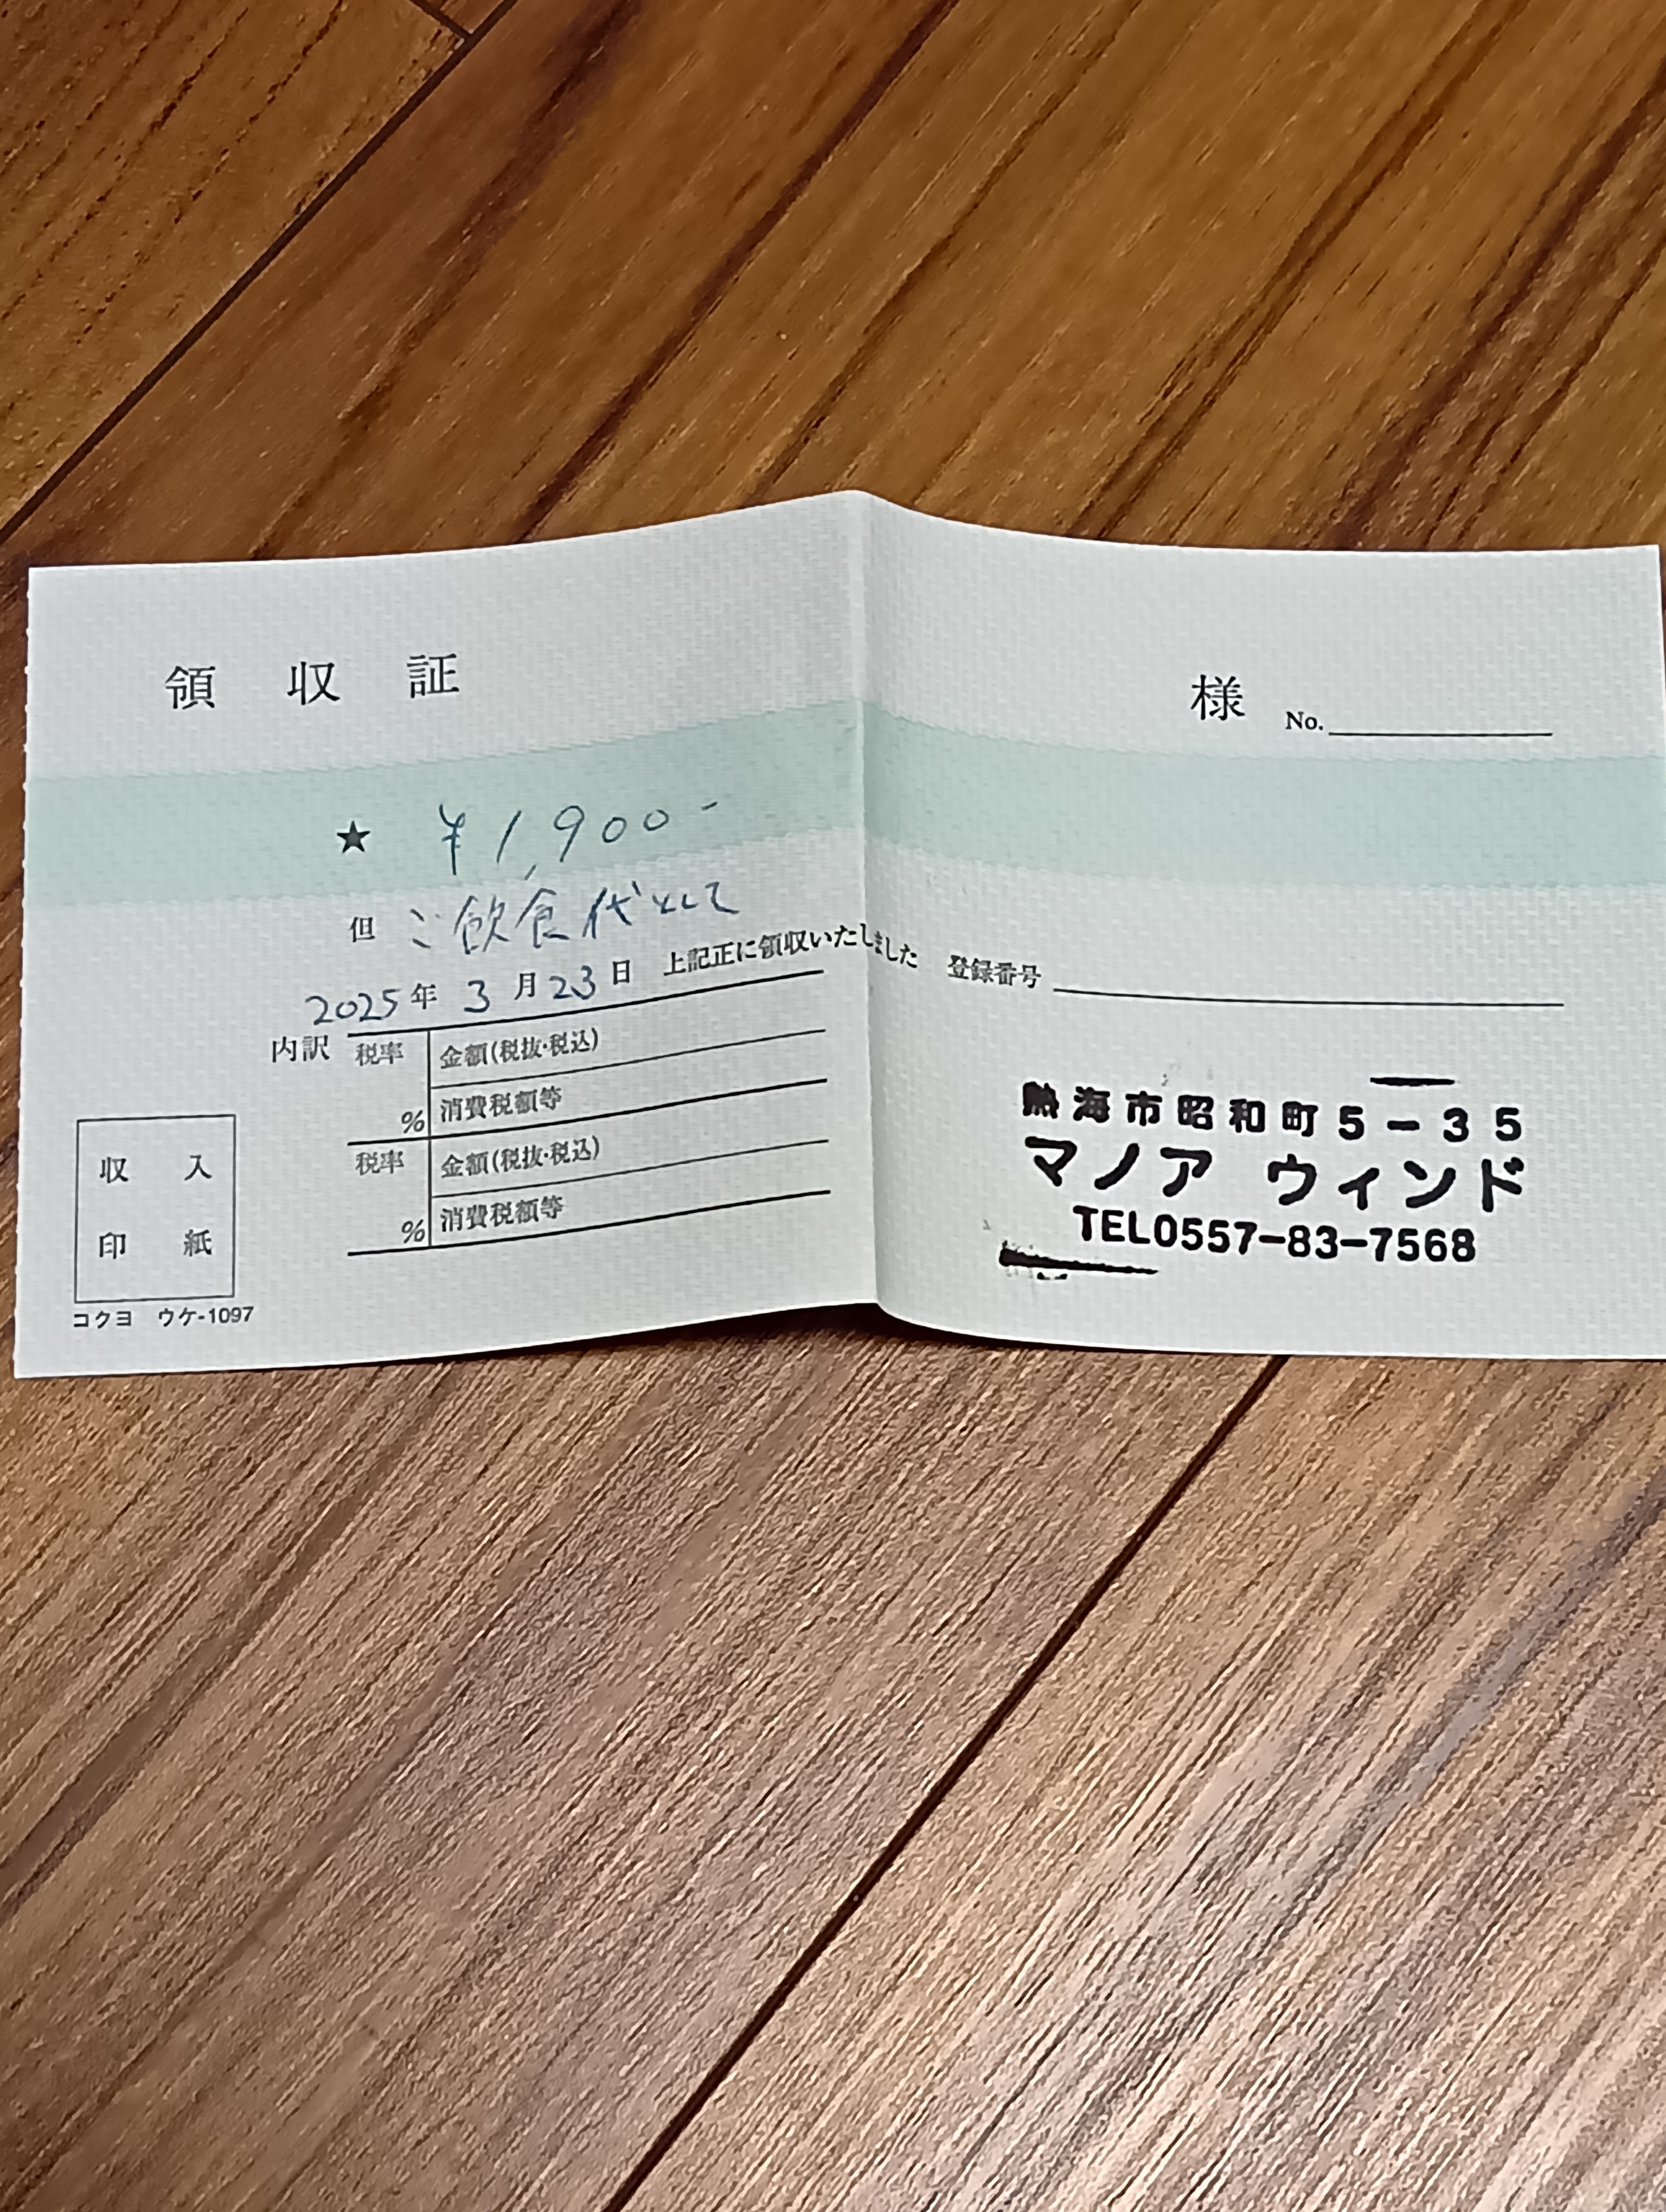 領収証 様 No.
★ ¥1,900-
但 ご飲食代として
2025年3月23日 上記正に領収いたしました 登録番号
内訳 税率 金額(税抜・税込)
% 消費税額等
税率 金額(税抜・税込)
% 消費税額等
収入
印紙
コクヨ ウケ-1097
熱海市昭和町5-35
マノア ウィンド
TEL0557-83-7568